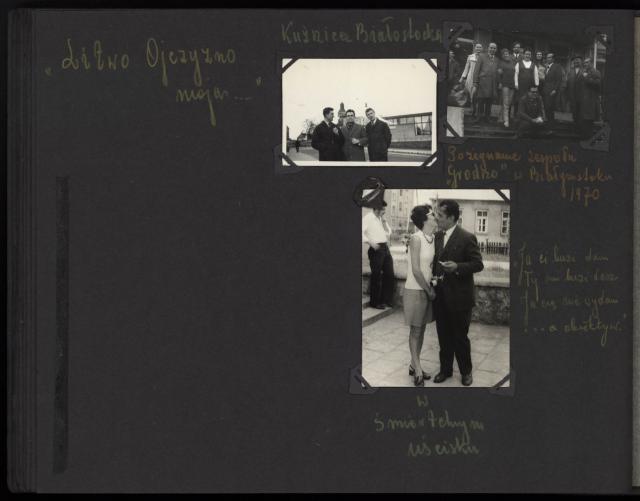 "Litwo Ojczyzno
moja..."
Kuźnica Białostocka
Pożegnanie zespołu
"Grodno" w Białymstoku
1970
"Ja ci buzi dam
Ty mi buzi dasz
Ja cię nie wydam
... a obiektyw."
w
śmiertelnym
uścisku